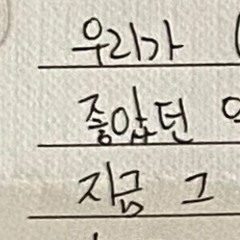 우리가
좋았던
지금 그